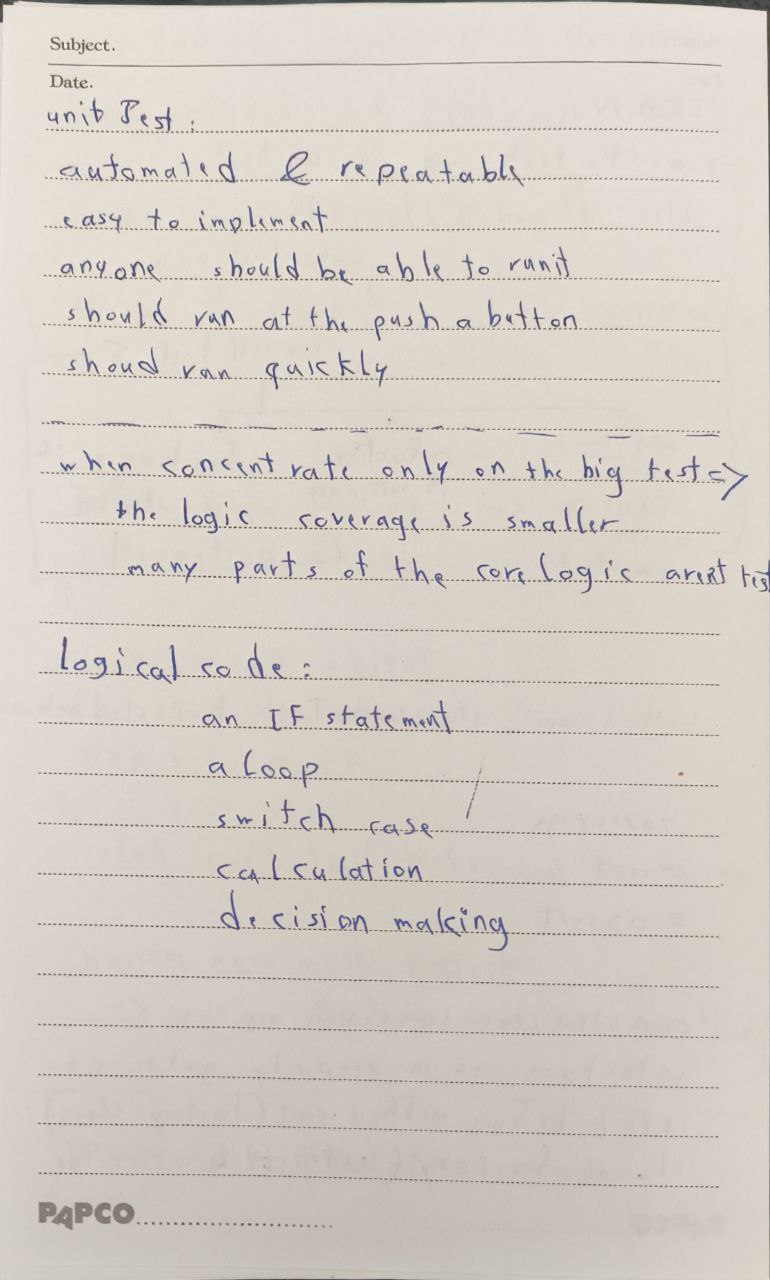 Subject.
Date.
unit Test :
automated & repeatable
easy to implement
anyone should be able to runit
should run at the push a button
shoud run quickly
when concentrate only on the big test =>
the logic coverage is smaller
many parts of the core logic aren't test
logical code :
an IF statement
a loop
switch case
calculation
decision making
PAPCO